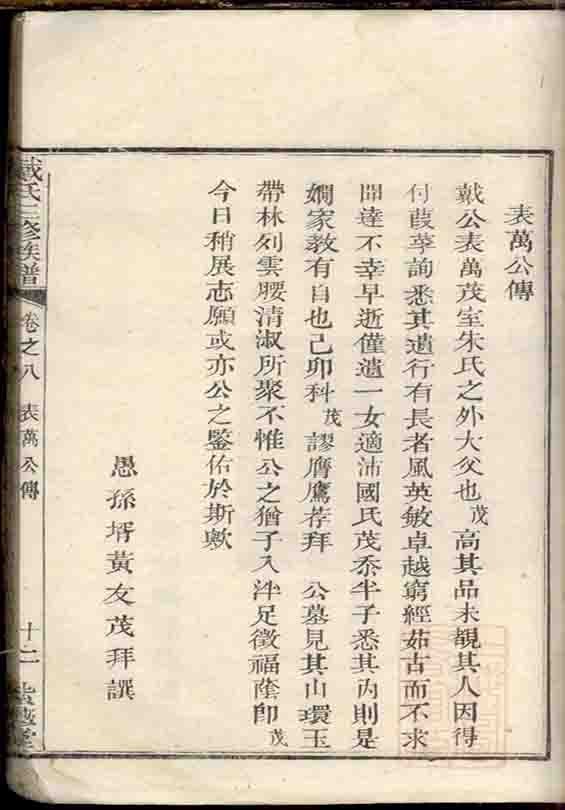 表萬公傳
戴公表萬茂室朱氏之外大父也茂高其品未覩其人因得
付葭莩詢悉其遺行有長者風英敏卓越窮經茹古而不求
聞達不幸早逝僅遺一女適沛國氏茂忝半子悉其內則是
嫺家教有自也己卯科茂謬膺鷹荐拜 公墓見其山環玉
帶林列雲腰清淑所聚不惟公之猶子入泮足徵福蔭卽茂
今日稍展志願或亦公之鑒佑於斯歟
愚孫壻黃友茂拜譔
戴氏三修族譜 卷之八 表萬公傳 十二